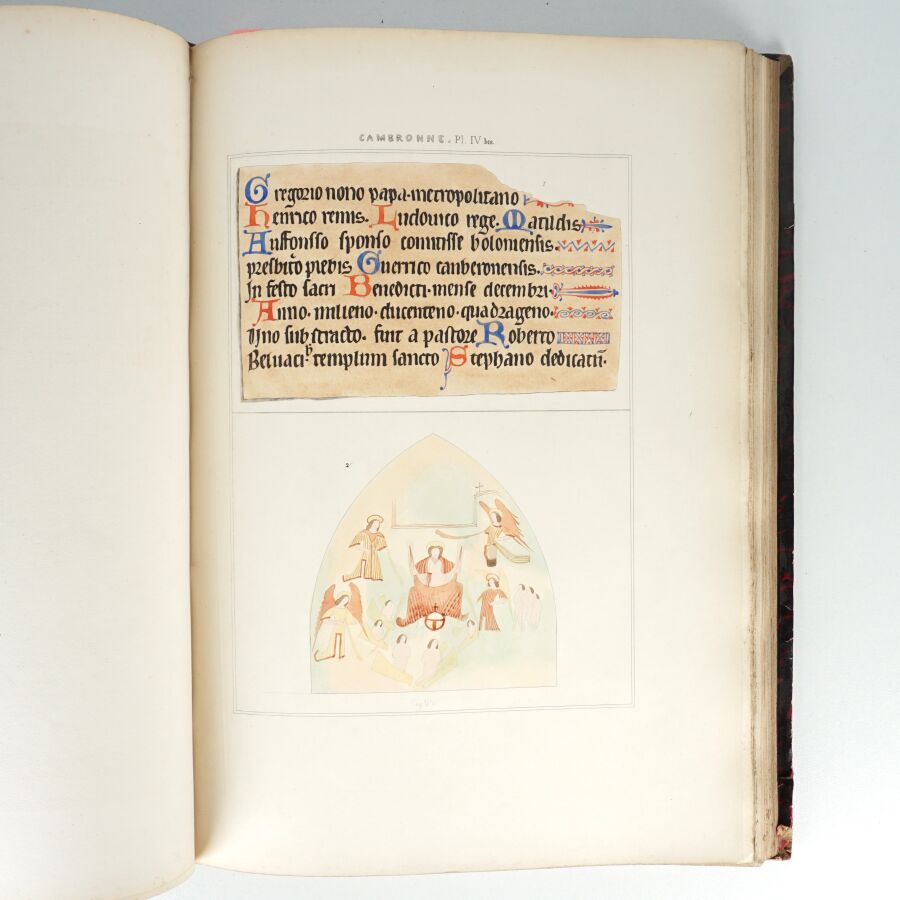 CAMBRONNE. Pl. IV bis.
1
Gregorio nono papa. metropolitano
henrico remis. Ludouico rege. Matildis
Auffonsso sponso comitisse bolomensis.
presbit͛o plebis Guerrico canberonensis.
In festo sacri Benedicti. mense decembri.
Anno. milleno. ducenteno. quadrageno.
Uno substracto. fuit a pastore Roberto
Beluaci templum sancto Stephano dedicatū.
2